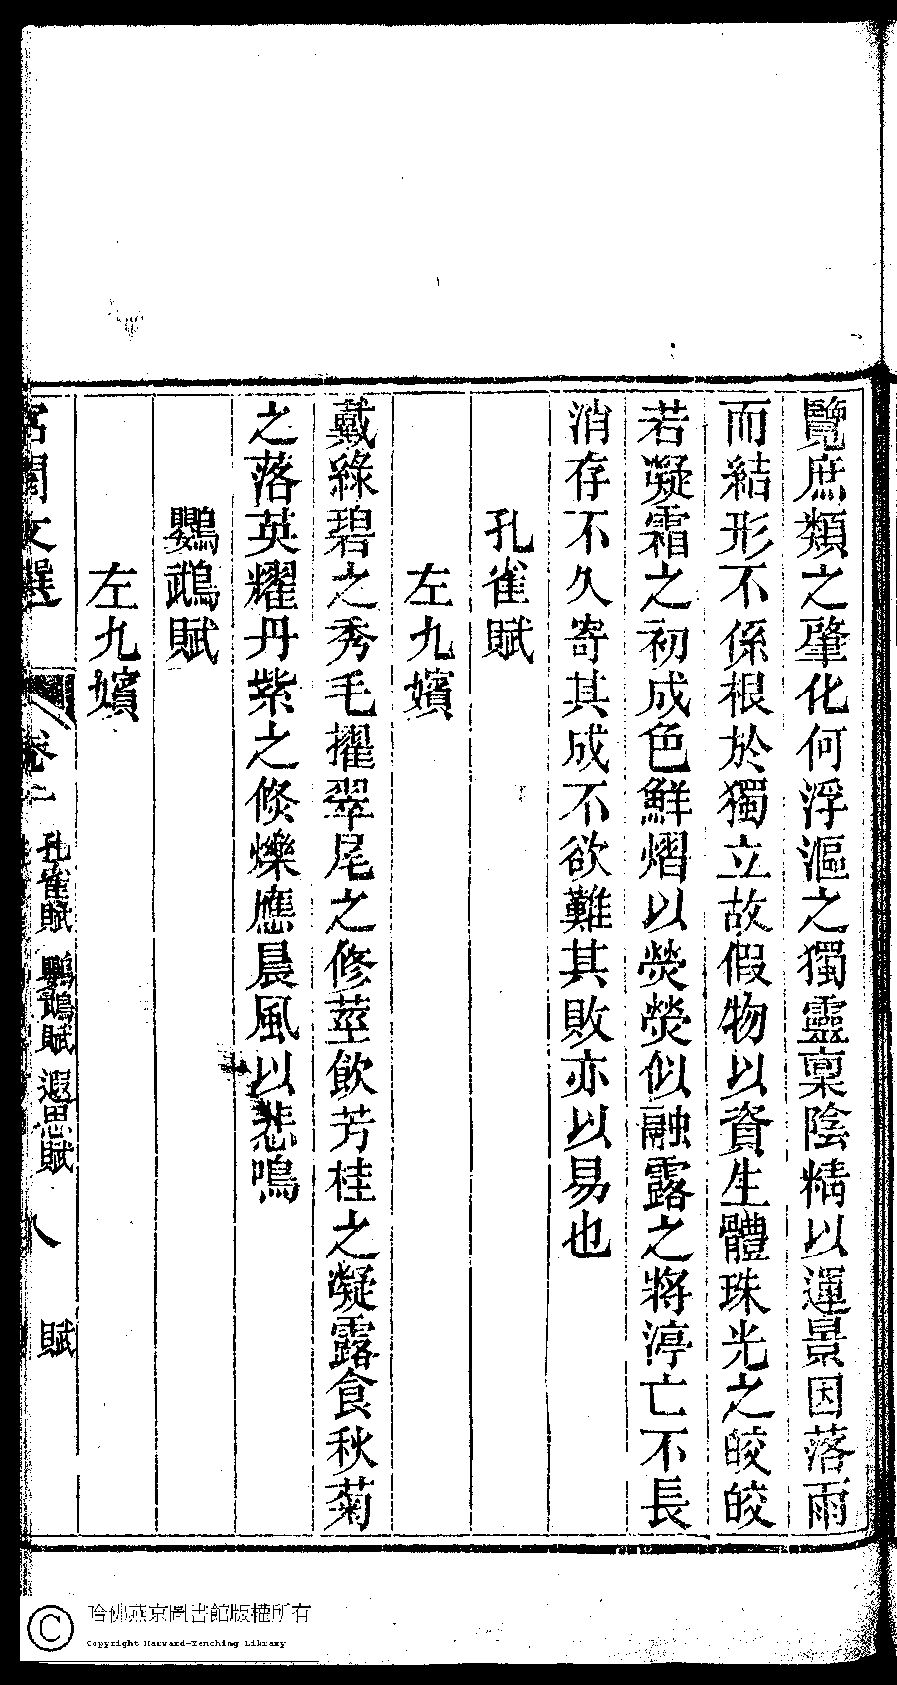 覽庶類之肇化何浮漚之獨靈稟陰精以運景因落雨
而結形不係根於獨立故假物以資生體珠光之皎皎
若凝霜之初成色鮮熠以熒熒似融露之將渟亡不長
消存不久寄其成不欲難其敗亦以易也
孔雀賦
左九嬪
戴綠碧之秀毛擢翠尾之修莖飲芳桂之凝露食秋菊
之落英耀丹紫之倏爍應晨風以悲鳴
鸚鵡賦
左九嬪
宮閨文選 卷二 孔雀賦 鸚鵡賦 遐思賦 八 賦
哈佛燕京圖書館版權所有
Copyright Harvard-Yenching Library